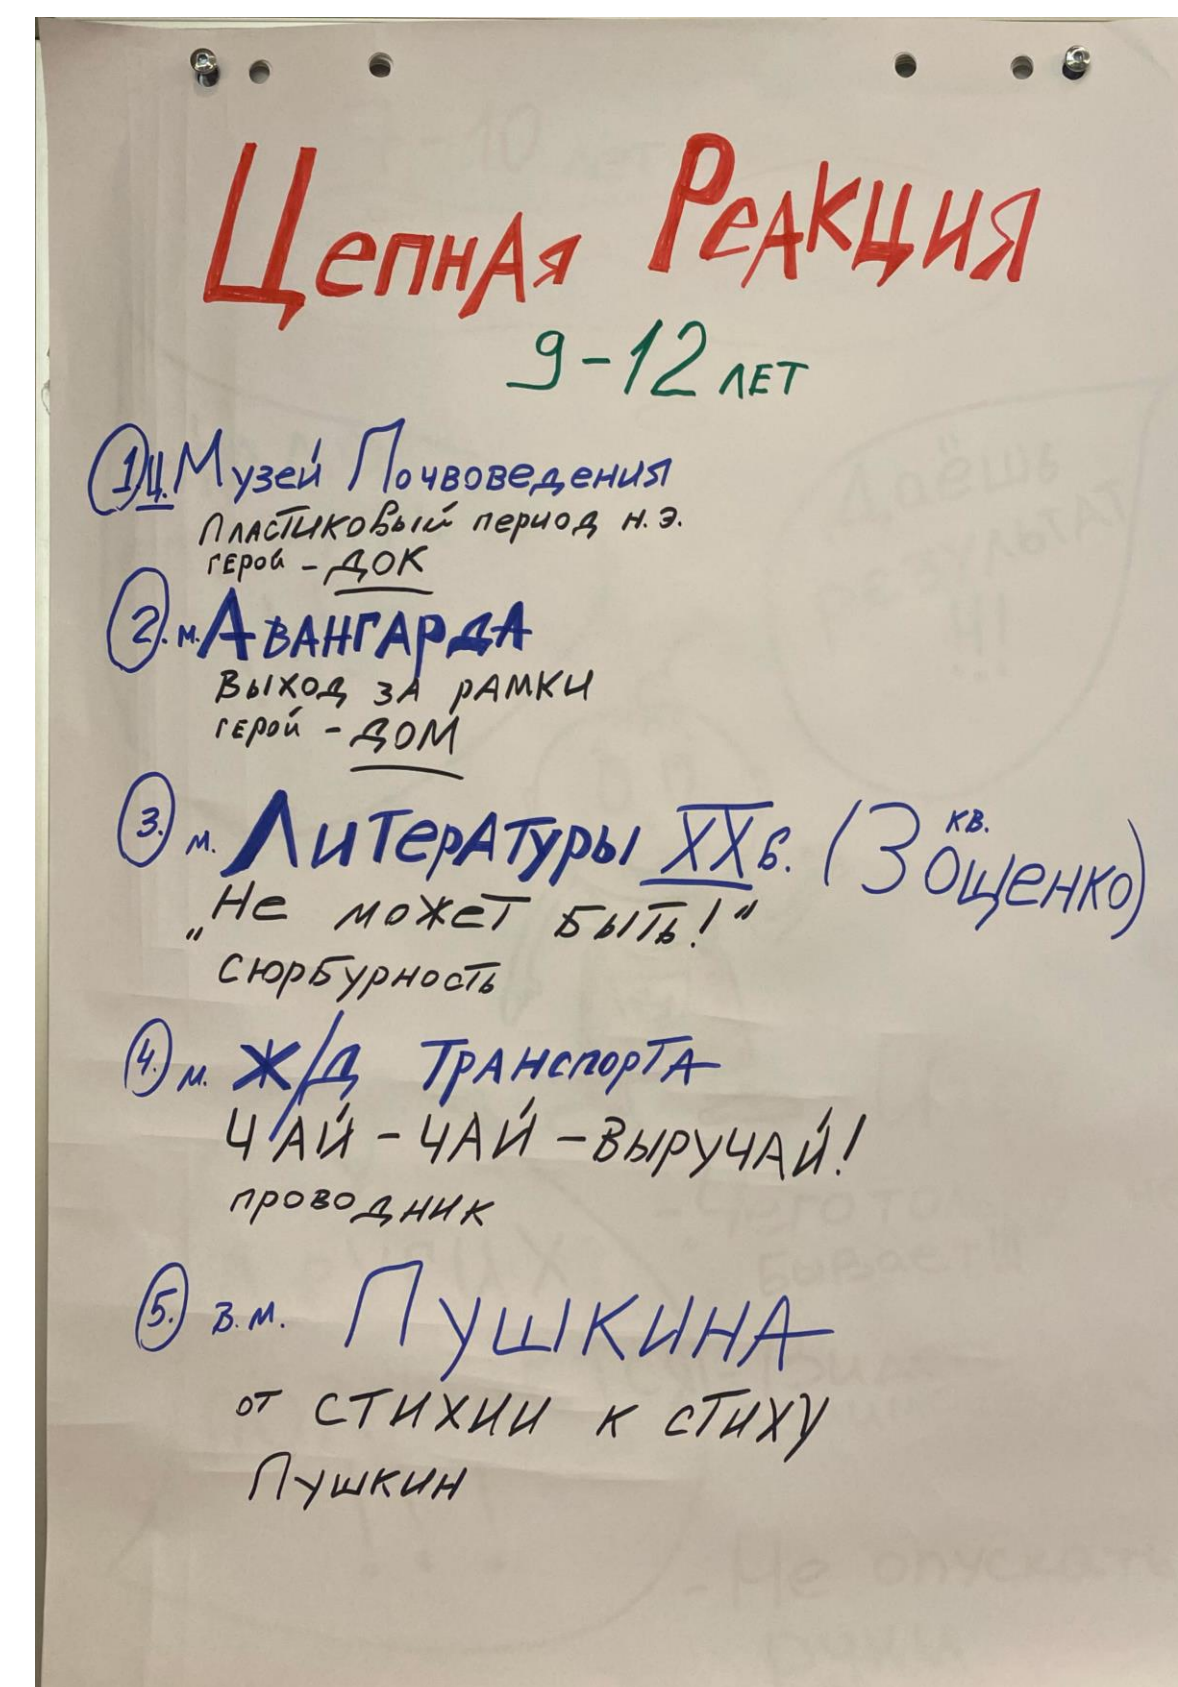 Цепная Реакция
9-12 лет
1. Ц. Музей Почвоведения
Пластиковый период н.э.
герой - ДОК
2. м. Авангарда
Выход за рамки
герой - ДОМ
3. м. Литературы XX в. (кв. Зощенко)
„Не может быть!“
Сюрбурность
4. м. Ж/Д Транспорта
Чай-чай-выручай!
проводник
5. в.м. Пушкина
от стихии к стиху
Пушкин